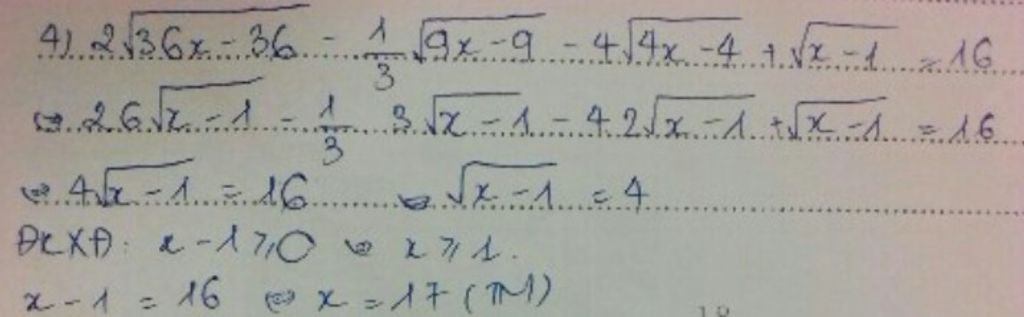 4) 2√(36x-36) - 1/3 √(9x-9) - 4√(4x-4) + √(x-1) = 16
⇔ 2 6√(x-1) - 1/3 3√(x-1) - 4 2√(x-1) + √(x-1) = 16
⇔ 4√(x-1) = 16 ⇔ √(x-1) = 4
ĐKXĐ: x-1 ≥ 0 ⇔ x ≥ 1.
x-1 = 16 ⇔ x = 17 (TM)